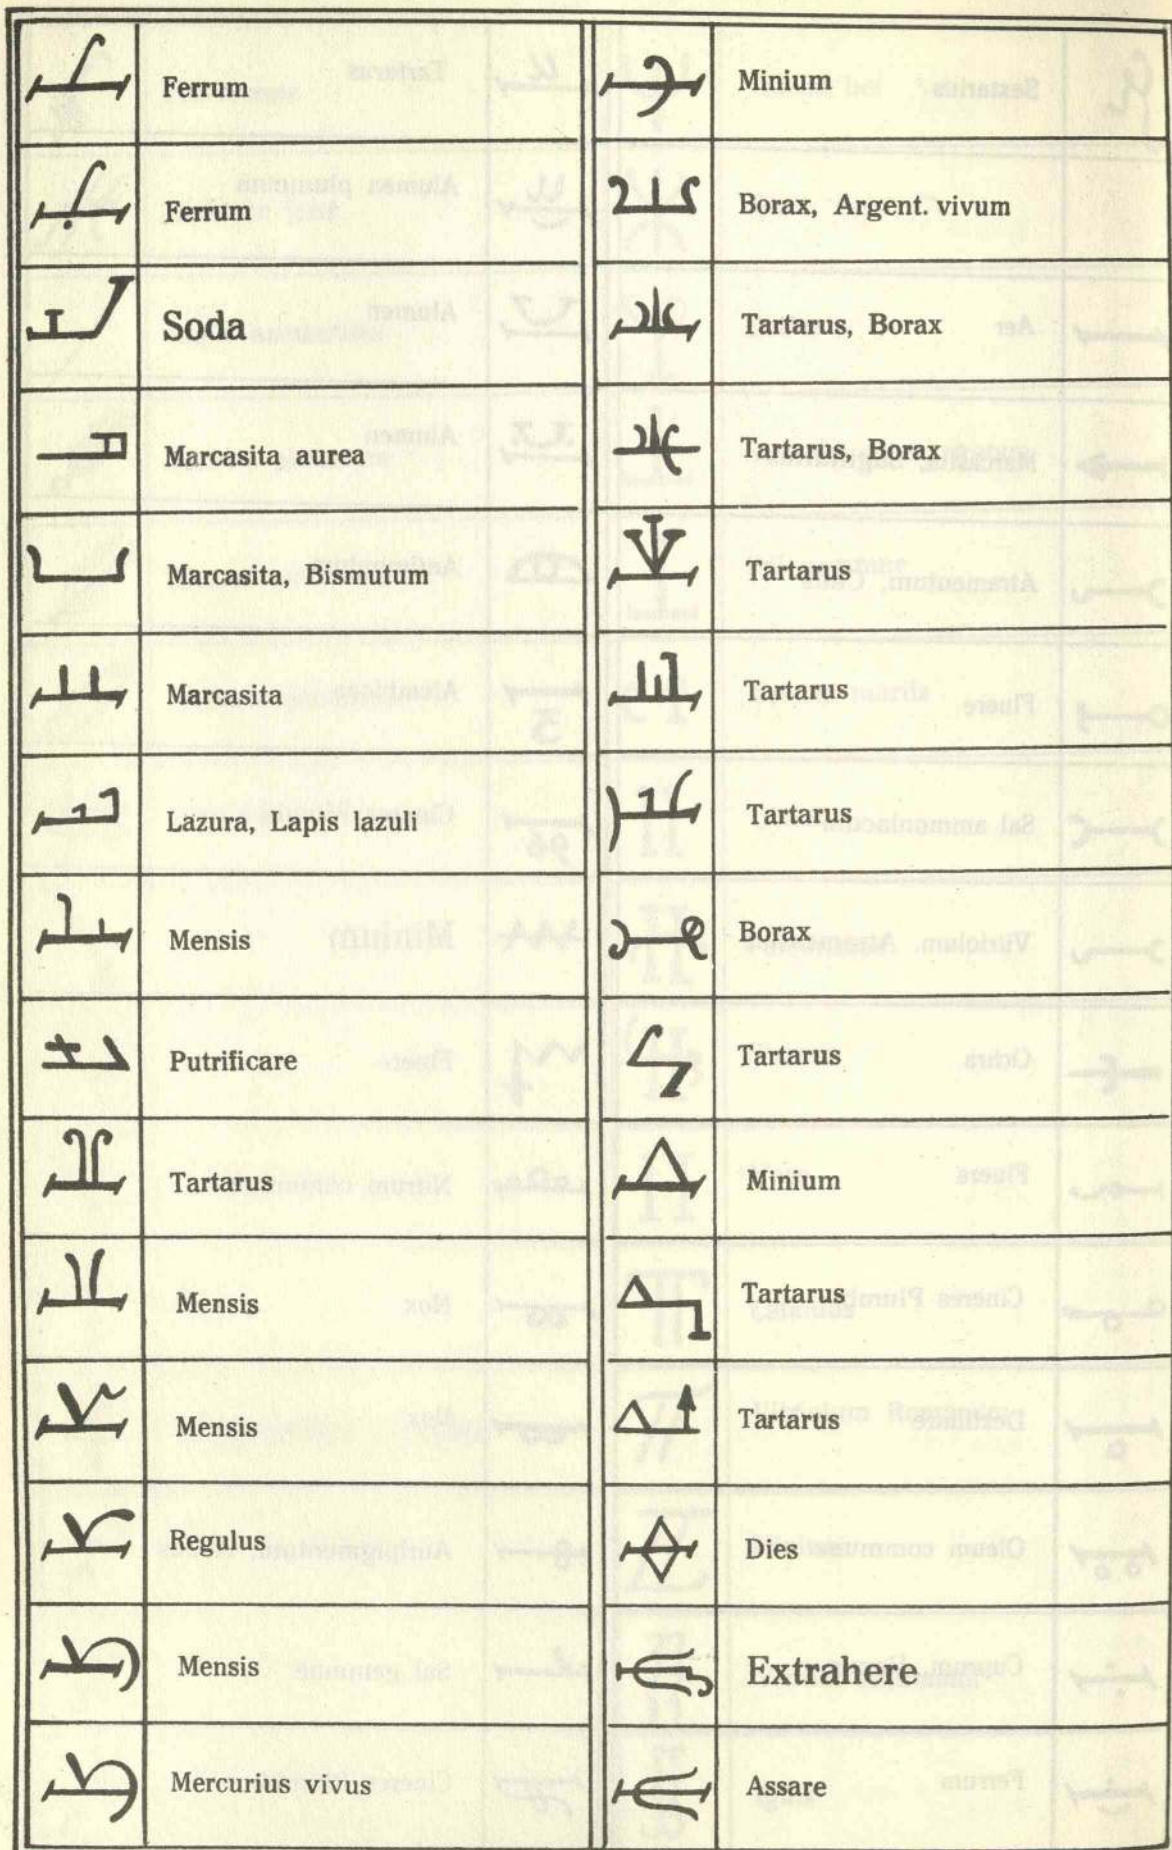 Ferrum
Ferrum
Soda
Marcasita aurea
Marcasita, Bismutum
Marcasita
Lazura, Lapis lazuli
Mensis
Putrificare
Tartarus
Mensis
Mensis
Regulus
Mensis
Mercurius vivus
Minium
Borax, Argent. vivum
Tartarus, Borax
Tartarus, Borax
Tartarus
Tartarus
Tartarus
Borax
Tartarus
Minium
Tartarus
Tartarus
Dies
Extrahere
Assare